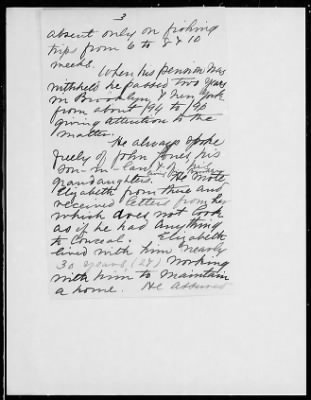 3
absent only on fishing
trips from 6 to 8 & 10
weeks.
When his pension was
withheld he passed two years
in Brooklyn, & New York
from about 94 to 96
giving attention to the
matter.
He always spoke
freely of John Jones his
son-in-law & of his
grandaughters. He wrote
Elizabeth from there and
received letters from her
which does not look
as if he had anything
to conceal. Elizabeth
lived with him nearly
30 years, (27) working
with him to maintain
a home. He assured